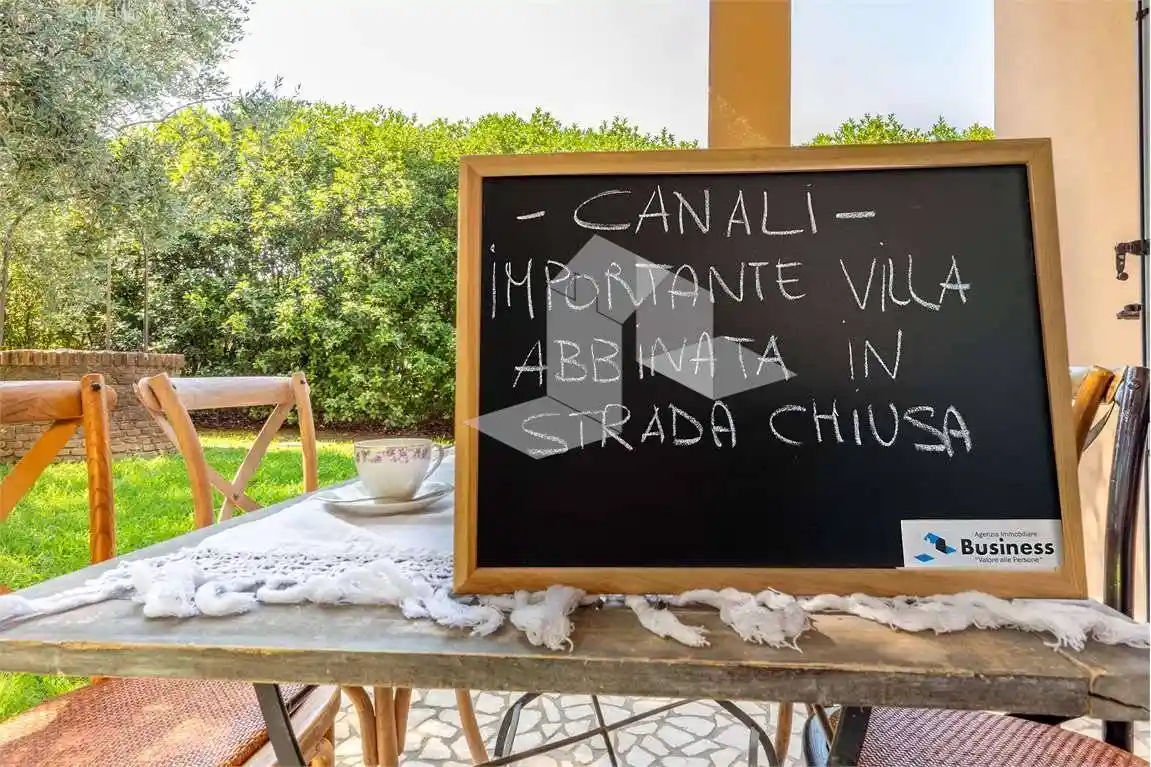 - CANALI -
IMPORTANTE VILLA
ABBINATA IN
STRADA CHIUSA
Agenzia Immobiliare
Business
"Valore alle Persone"